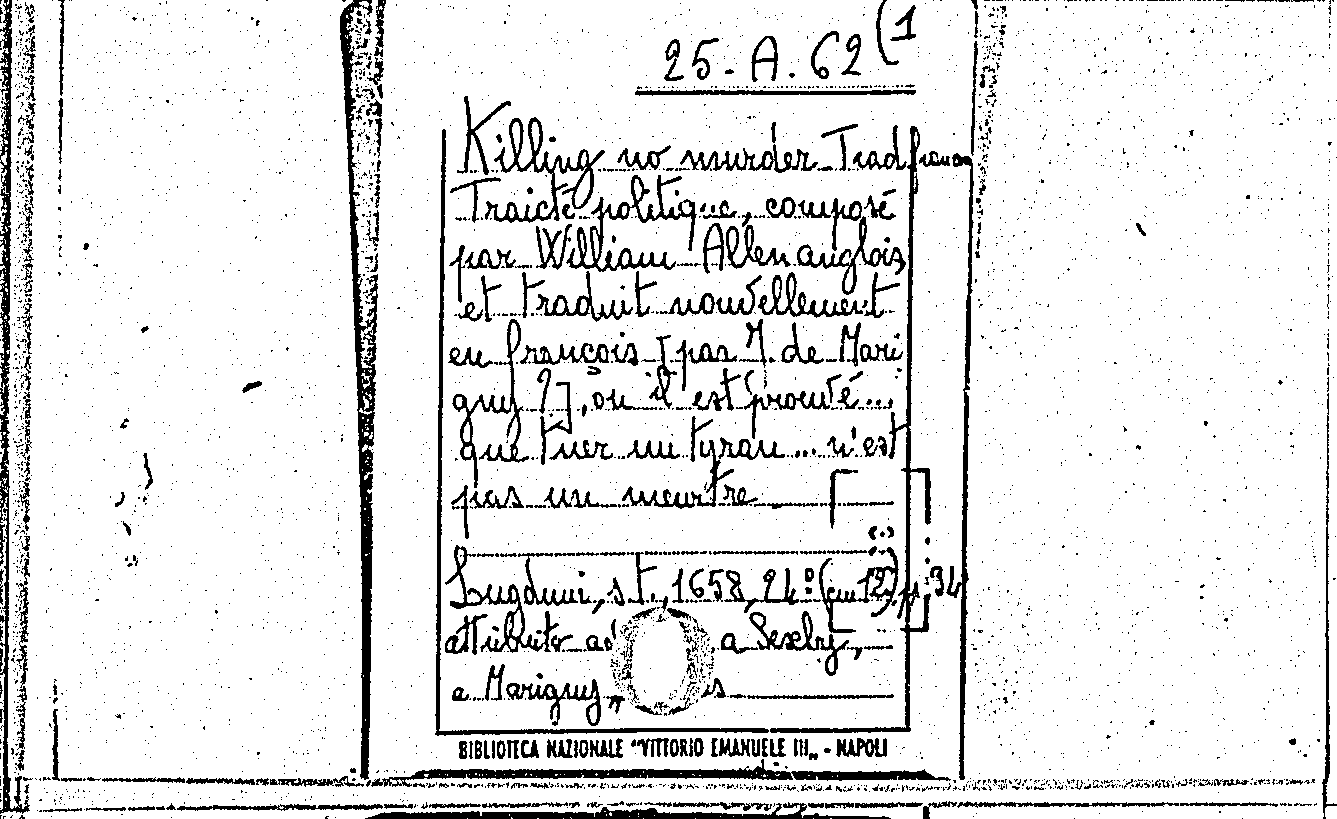 25. A. 62 (1
Killing no murder Trad. francese
Traicté politique, composé
par William Allen anglois,
et traduit nouvellement
en françois [par J. de Mari
gny ?], ou il est prouvé...
que tuer un tyran... n'est
pas un meurtre
Lugduni, s.t., 1658, 24° (cm 12), p. 94
attribuito a Sexby,
a Marigny,
BIBLIOTECA NAZIONALE "VITTORIO EMANUELE III„ - NAPOLI